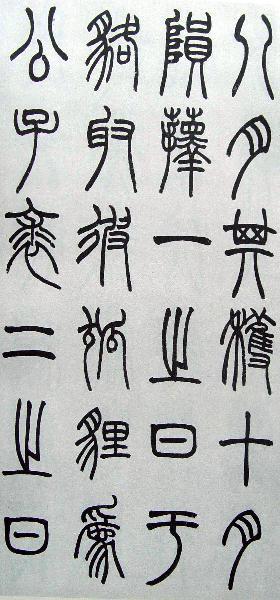 八月其穫十月
隕蘀一之日于
貉取彼狐貍為
公子裘二之日